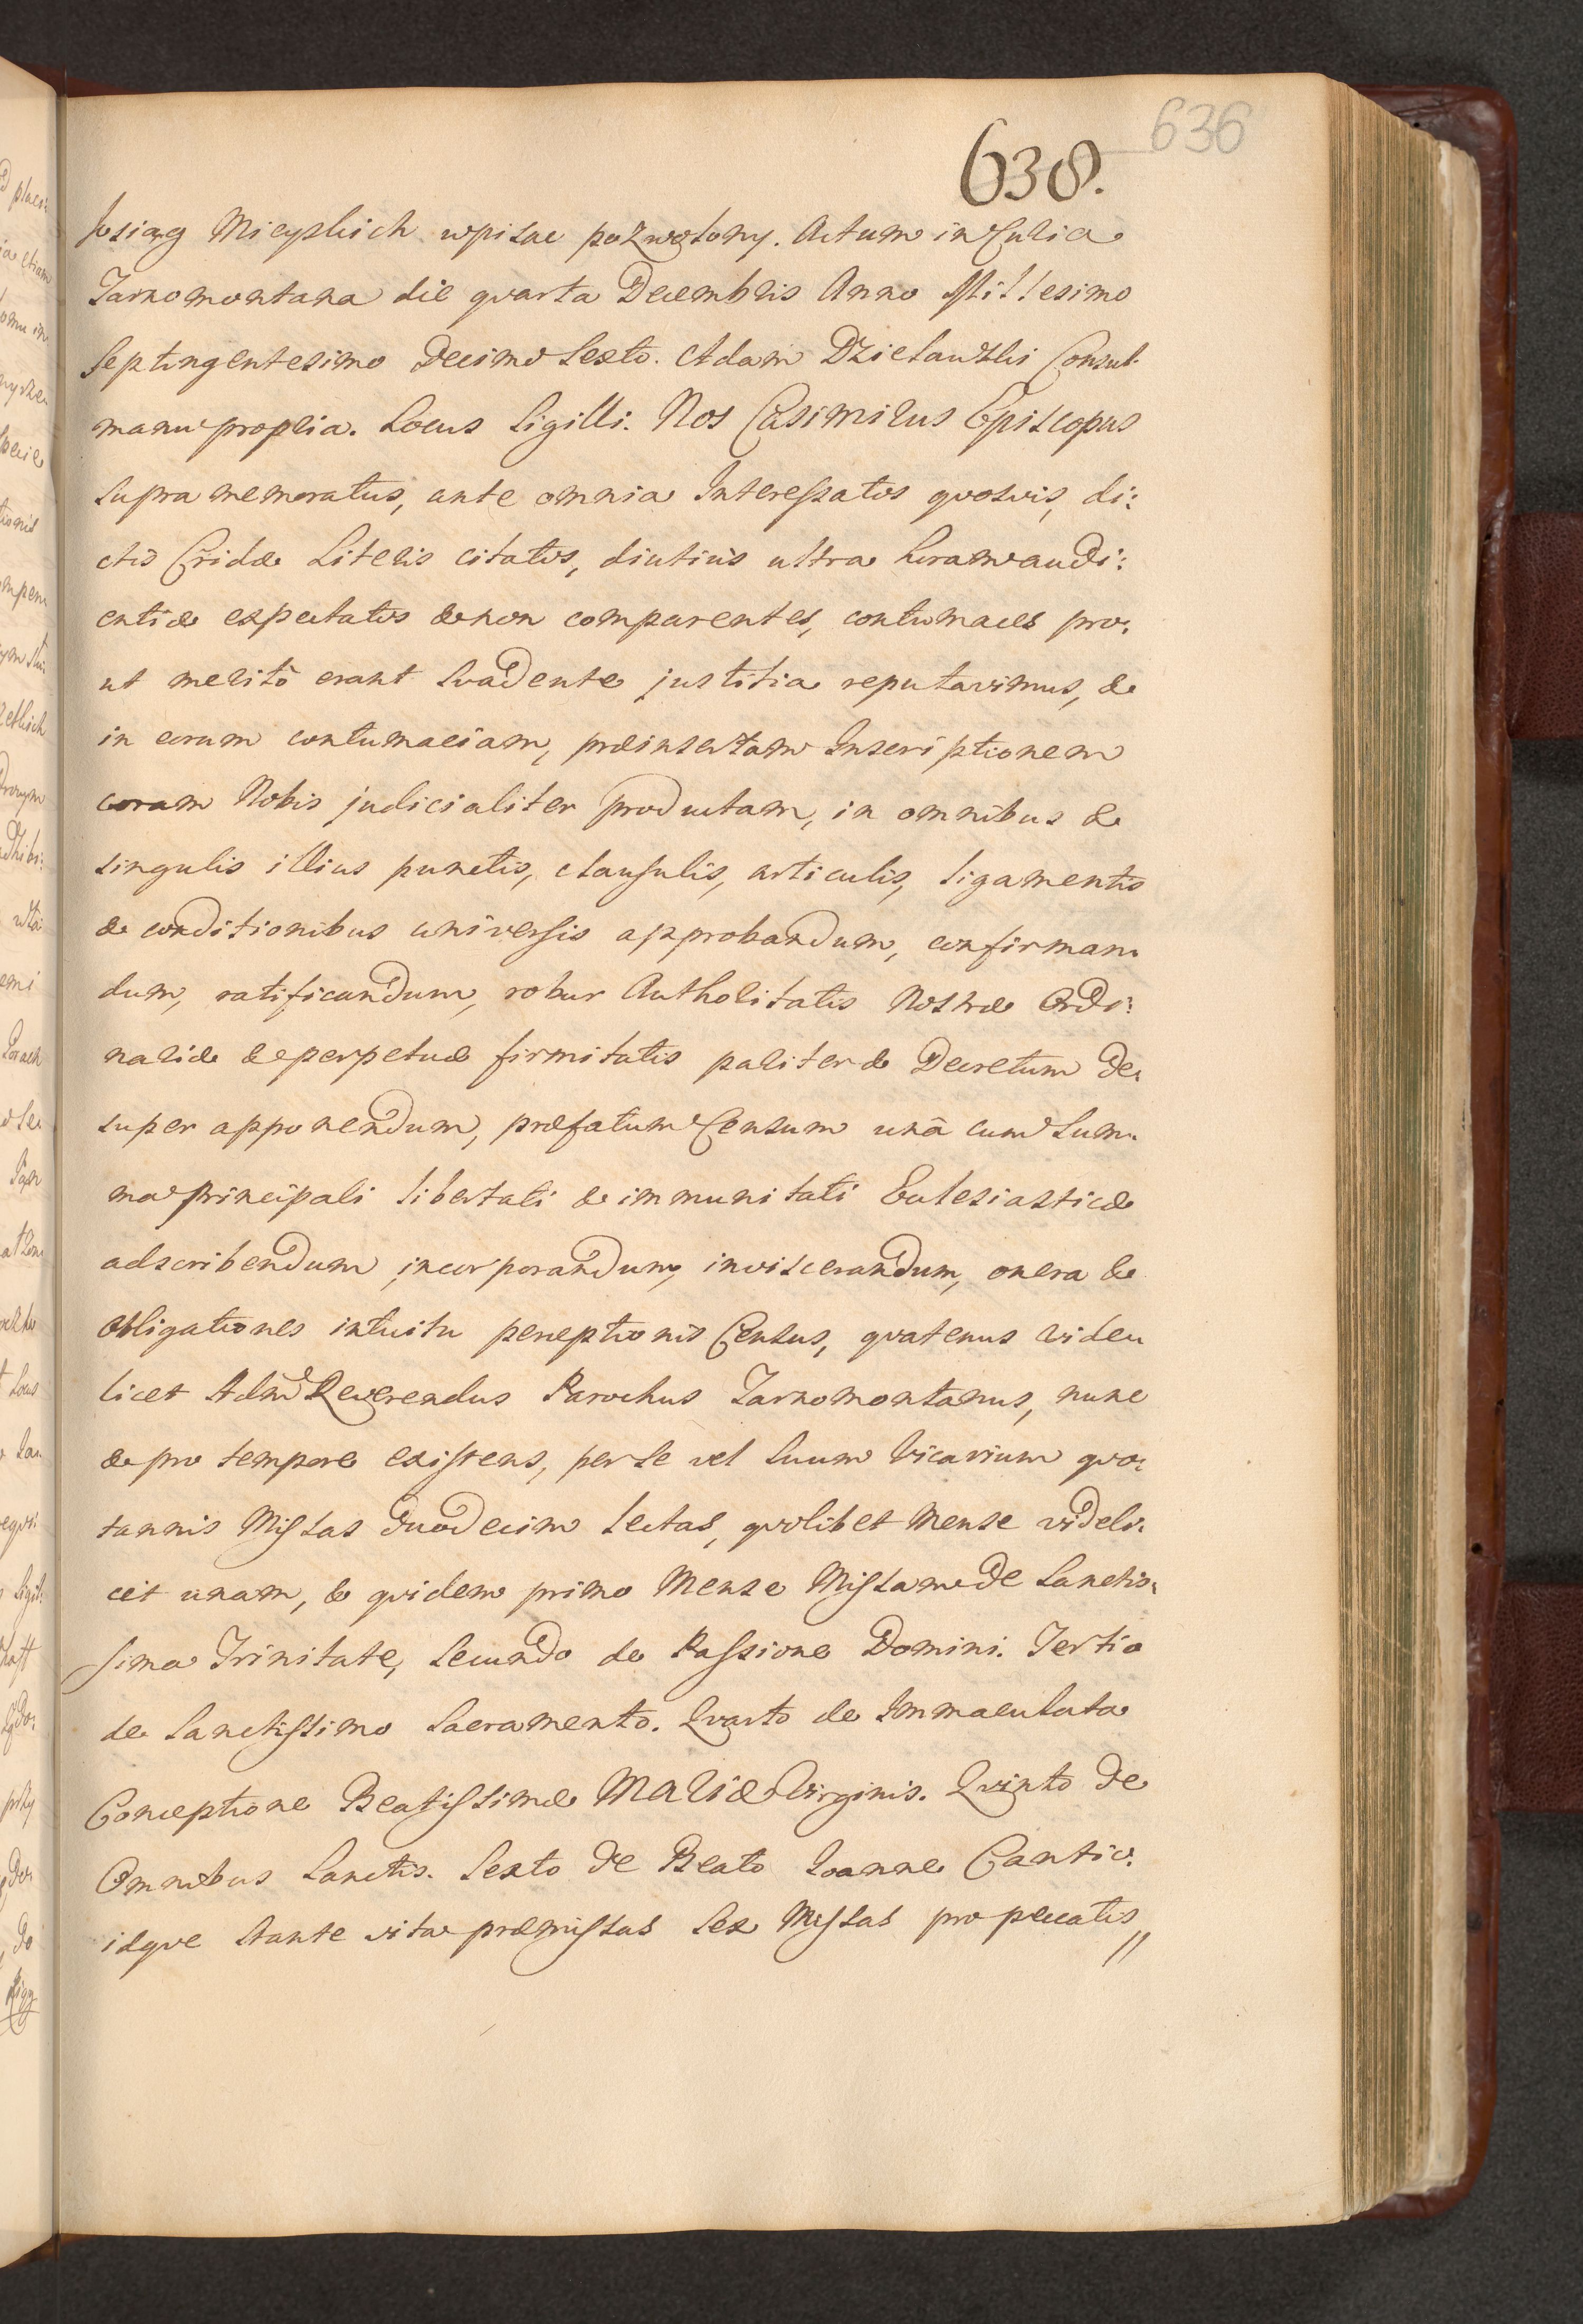 636
638.
ksiąg Mieyskich wpisac pozwolony. Actum in Curia
Tarnomontana die qvarta Decembris Anno Millesimo
Septingentesimo Decimo Sexto. Adam Dzielawski Consul.
manu propria. Locus Sigilli. Nos Casimirus Episcopus
supra memoratus, ante omnia Interessatos qvosvis, di:
ctis Cridæ Literis citatos, diutius ultra horam audi:
entiæ expectatos & non comparentes, contumaces pro:
ut meritò erant svadente justitia reputavimus, &
in eorum contumaciam, præinsertam Inscriptionem
coram Nobis judicialiter productam, in omnibus &
singulis illius punctis, clausulis, articulis, ligamentis
& conditionibus universis approbandum, confirman:
dum, ratificandum, robur Authoritatis Nostræ Ordi:
nariæ & perpetuæ firmitatis pariter & Decretum de:
super apponendum, præfatum Censum unà cum Sum:
ma principali libertati & immunitati Eclesiasticæ
adscribendum, incorporandum, inviscerandum, onera &
obligationes intuitu perceptionis Census, qvatenus vide:
licet Adm Reverendus Parochus Tarnomontanus, nunc
& pro tempore existens, per se vel suum Vicarium qvo:
tannis Missas duodecim lectas, qvolibet Mense videli:
cet unam, & qvidem primo Mense Missam de Sanctis:
sima Trinitate, Secundo de Passione Domini. Tertio
de Sanctissimo Sacramento. Qvarto de Immaculata
Conceptione Beatissimæ MARIÆ Virginis. Qvinto de
Omnibus Sanctis. Sexto de Beato Ioanne Cantio.
idqve stante vita præmissas sex Missas pro peccatis